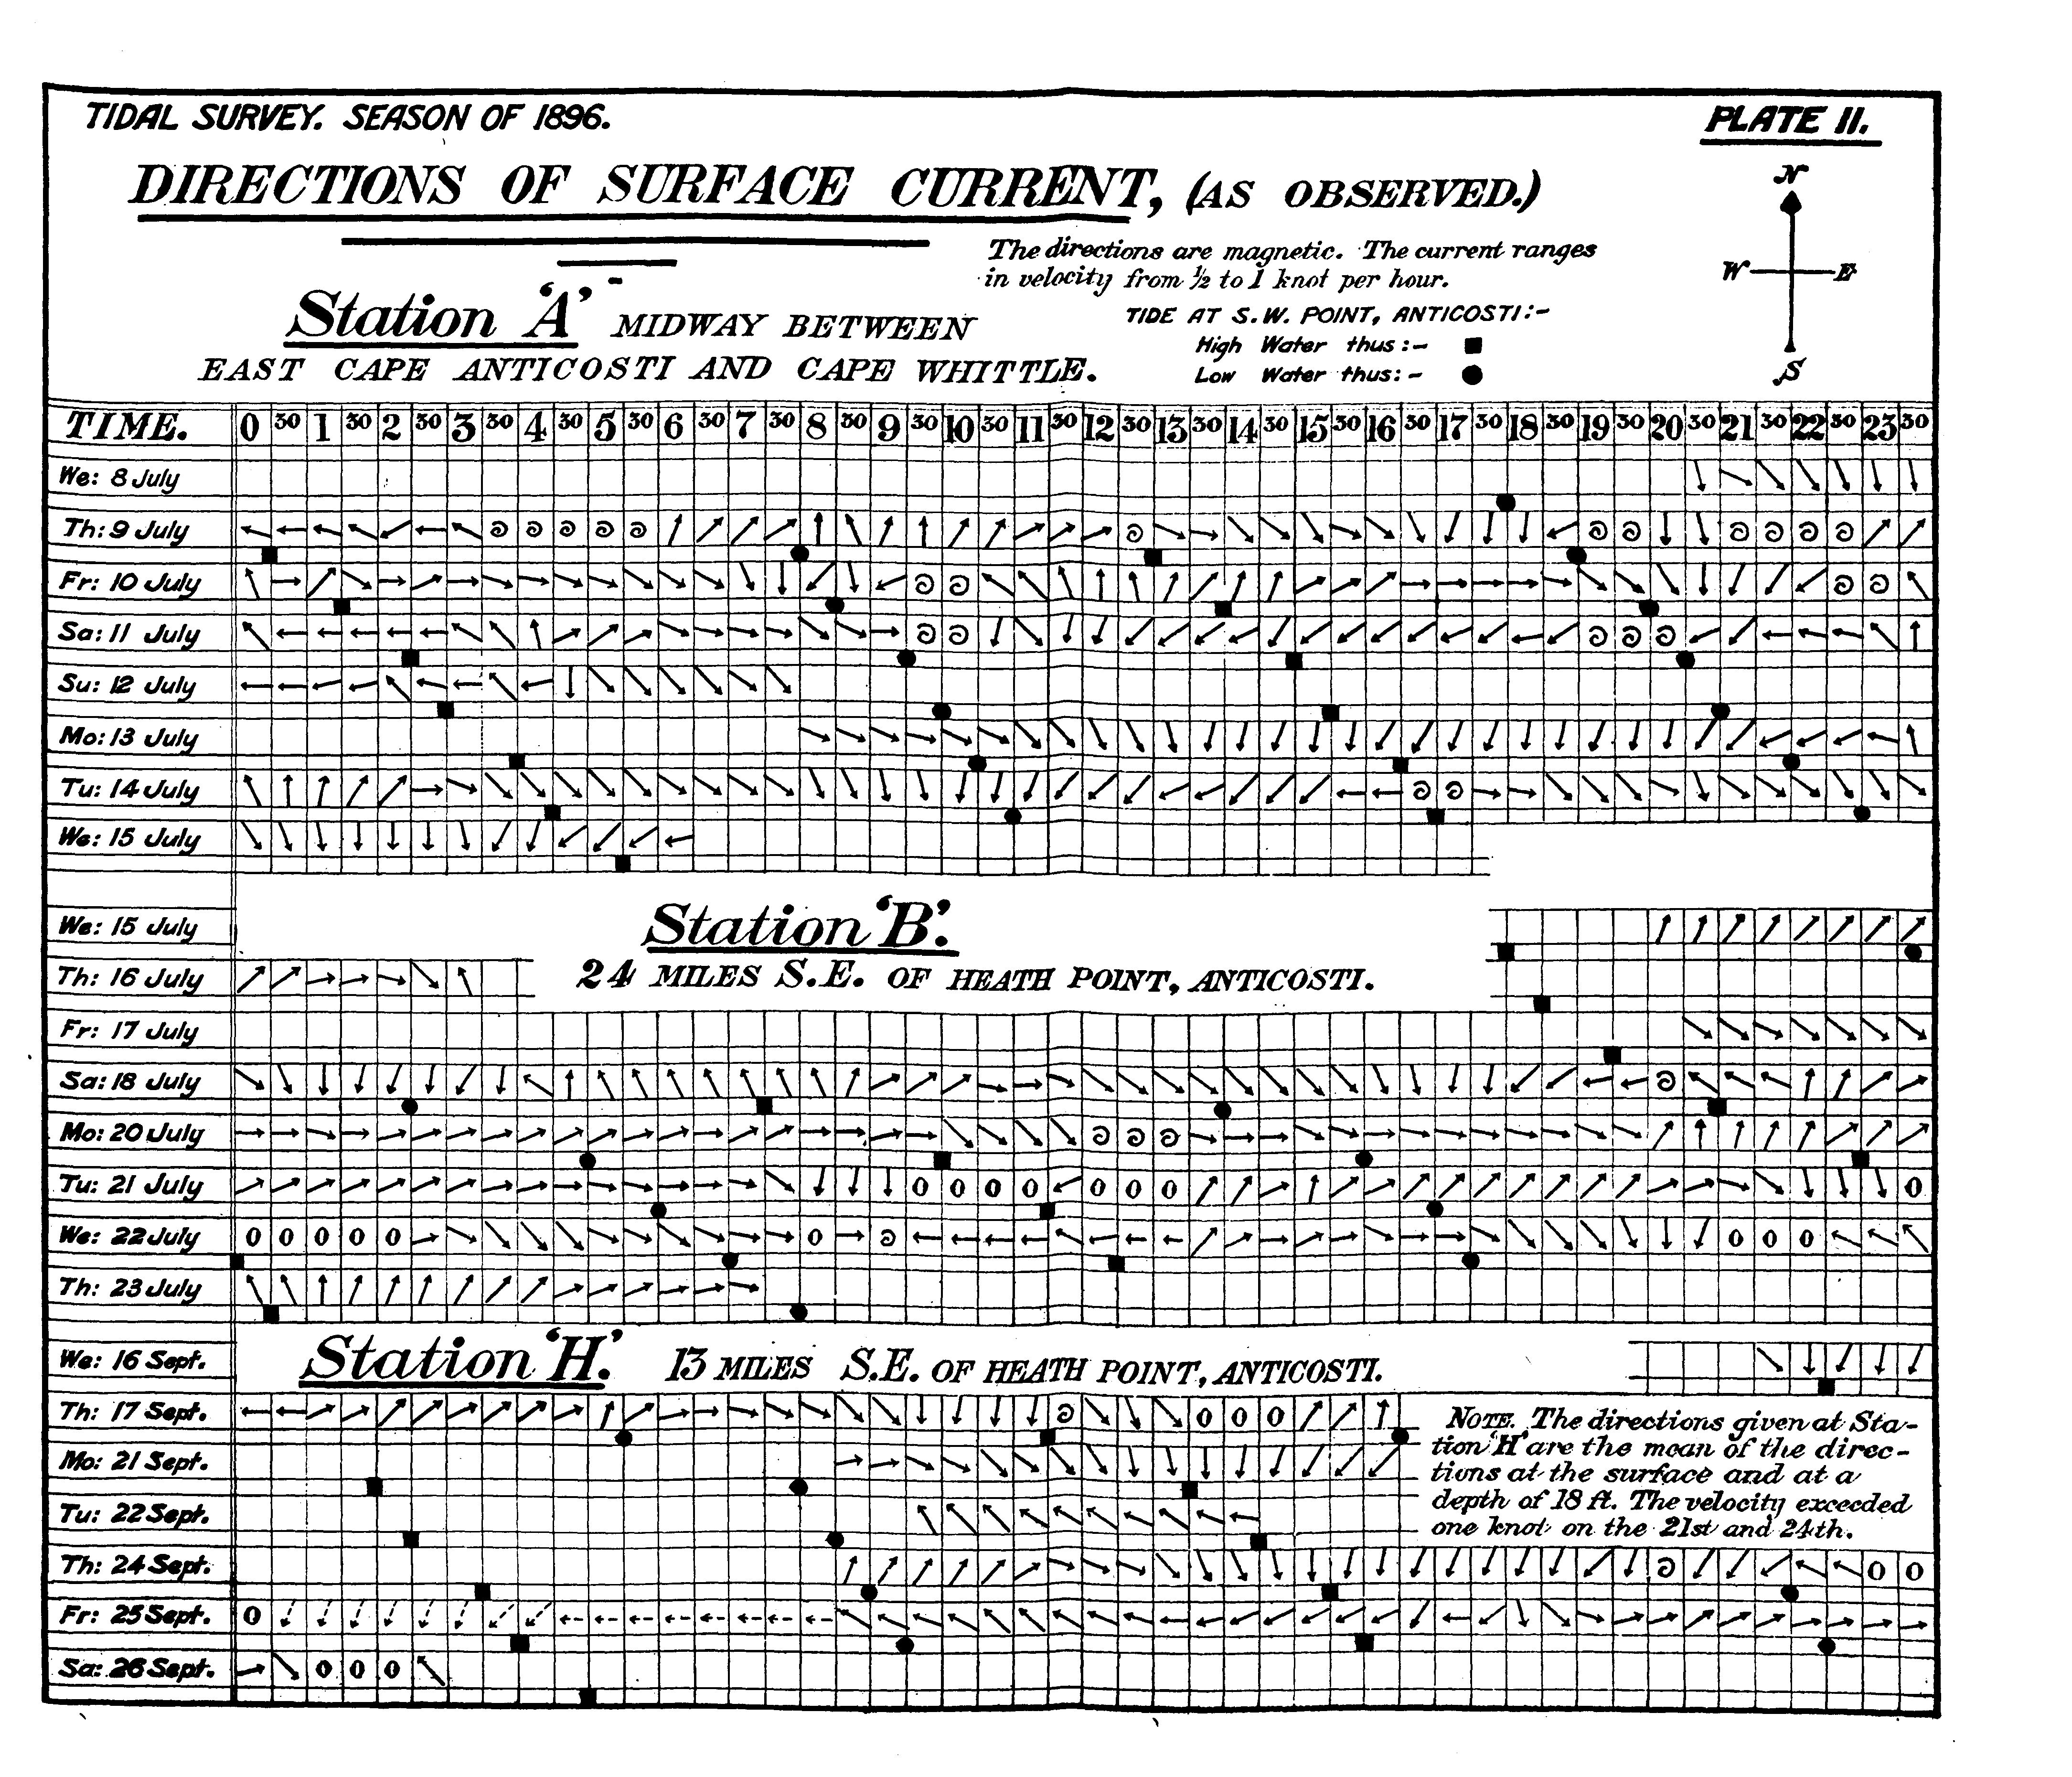 TIDAL SURVEY. SEASON OF 1896.
PLATE II.
DIRECTIONS OF SURFACE CURRENT, (AS OBSERVED.)
N
W E
S
The directions are magnetic. The current ranges
in velocity from ½ to 1 knot per hour.
TIDE AT S.W. POINT, ANTICOSTI:-
High Water thus:- ■
Low Water thus:- ●
Station 'A' MIDWAY BETWEEN
EAST CAPE ANTICOSTI AND CAPE WHITTLE.
TIME. 0 30 1 30 2 30 3 30 4 30 5 30 6 30 7 30 8 30 9 30 10 30 11 30 12 30 13 30 14 30 15 30 16 30 17 30 18 30 19 30 20 30 21 30 22 30 23 30
We: 8 July
Th: 9 July
Fr: 10 July
Sa: 11 July
Su: 12 July
Mo: 13 July
Tu: 14 July
We: 15 July
Station 'B'.
24 MILES S.E. OF HEATH POINT, ANTICOSTI.
We: 15 July
Th: 16 July
Fr: 17 July
Sa: 18 July
Mo: 20 July
Tu: 21 July 0 0 0 0 0 0 0 0
We: 22 July 0 0 0 0 0 0 0 0 0
Th: 23 July
Station 'H'. 13 MILES S.E. OF HEATH POINT, ANTICOSTI.
We: 16 Sept.
Th: 17 Sept. 0 0 0
Mo: 21 Sept.
Tu: 22 Sept.
Th: 24 Sept. 0 0
Fr: 25 Sept. 0
Sa: 26 Sept. 0 0 0
NOTE. The directions given at Sta-
tion 'H' are the mean of the direc-
tions at the surface and at a
depth of 18 ft. The velocity exceeded
one knot on the 21st and 24th.